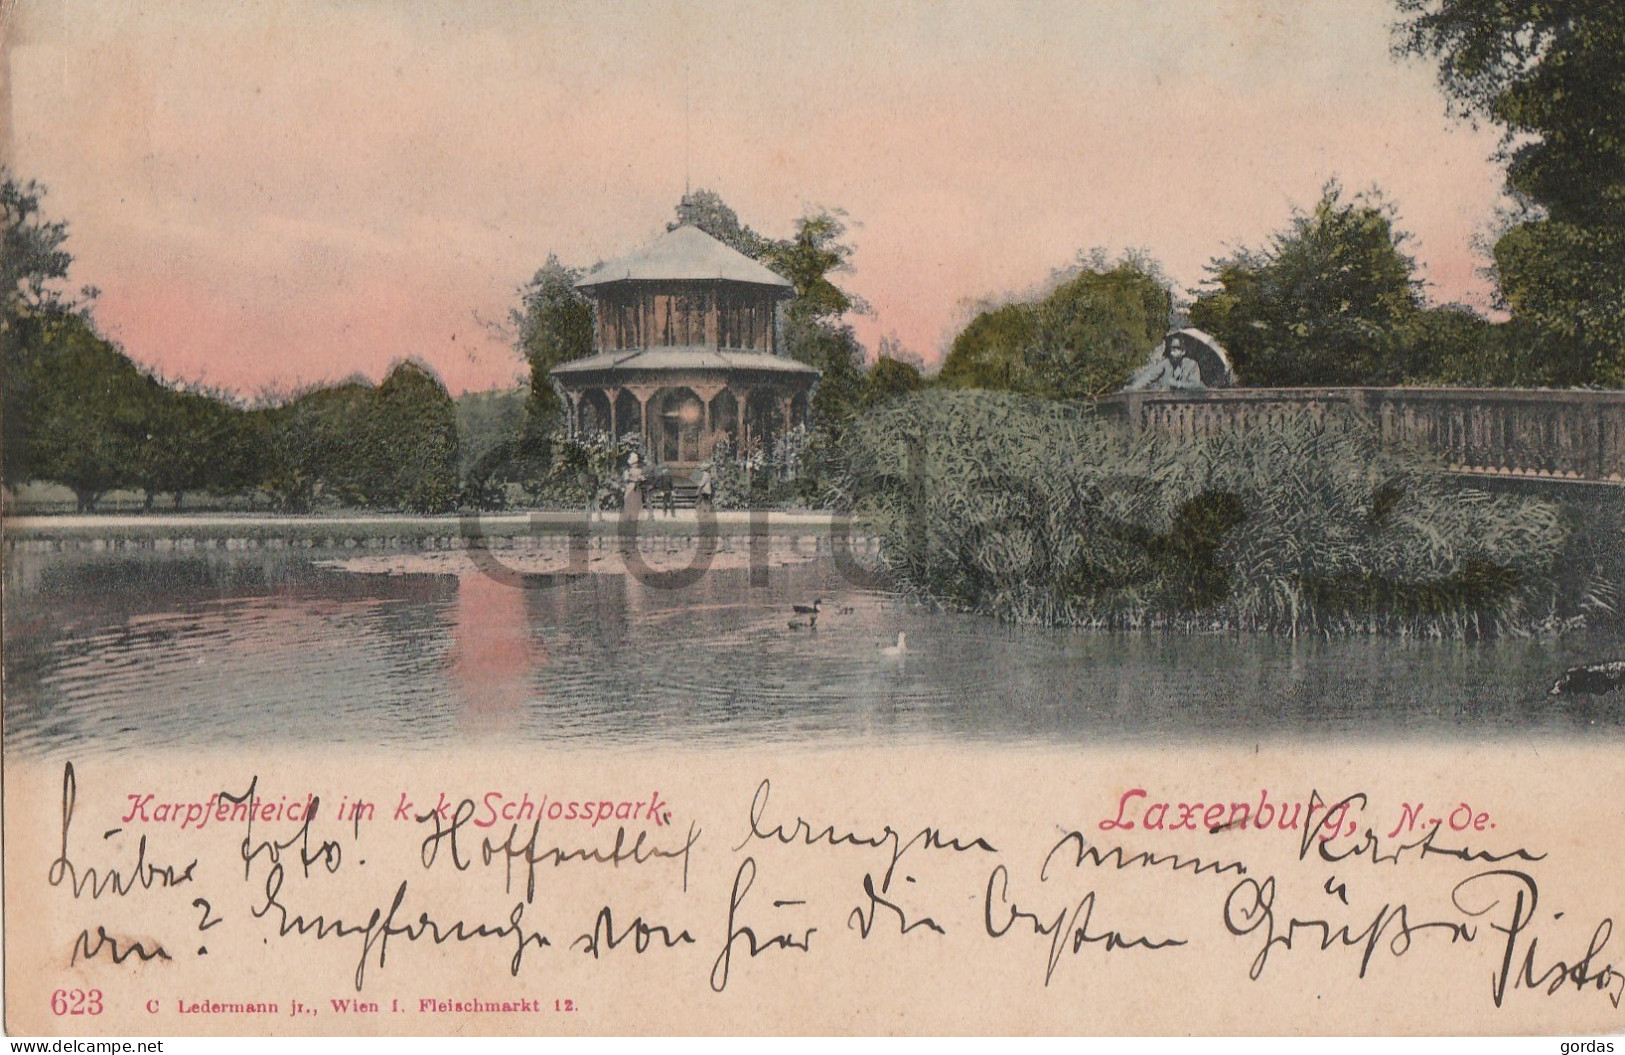 Gordas
Karpfenteich im k. k. Schlosspark.
Laxenburg, N.-Oe.
Lieber Toto! Hoffentlich langen meine Karten
an? Empfange von hier die besten Grüße Pistos
623 C Ledermann jr., Wien I. Fleischmarkt 12.
www.delcampe.net
gordas